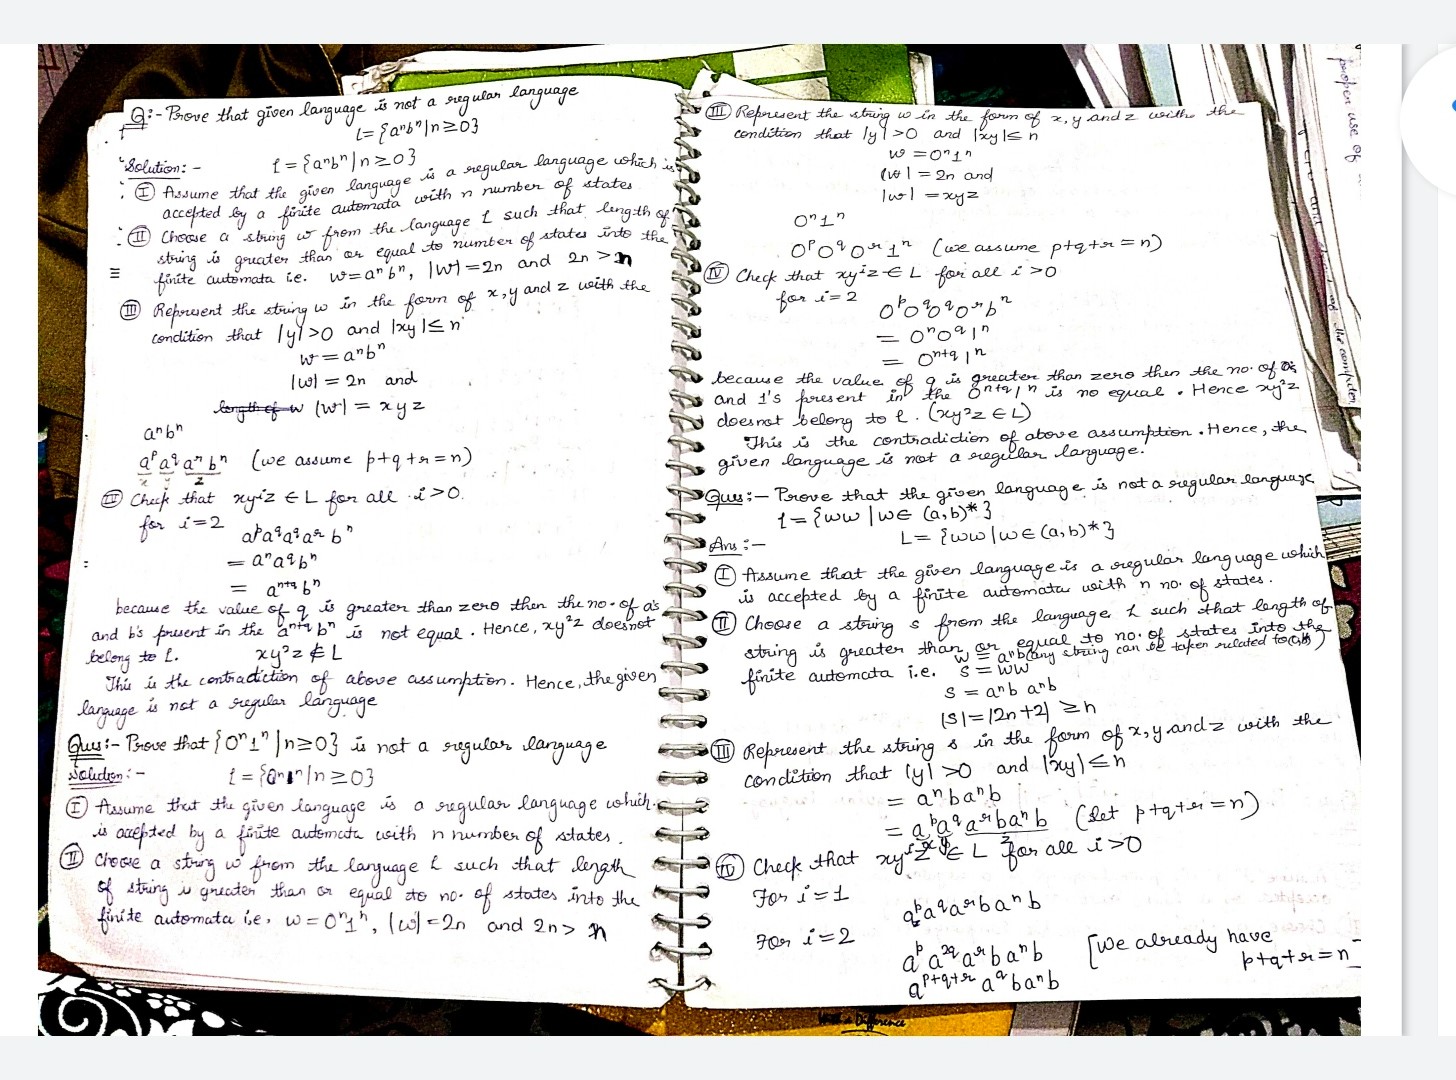 Q:- Prove that given language is not a regular language
L= {aⁿbⁿ|n≥0}
Solution: - L = {aⁿbⁿ|n≥0}
I Assume that the given language is a regular language which is
accepted by a finite automata with n number of states
II Choose a string w from the language L such that length of
string is greater than or equal to number of states into the
finite automata i.e. w=aⁿbⁿ, |w|=2n and 2n >n
III Represent the string w in the form of x,y and z with the
condition that |y|>0 and |xy|≤n
w=aⁿbⁿ
|w| = 2n and
|w| = xyz
aⁿbⁿ
aᵖ a^q aʳ bⁿ (we assume p+q+r=n)
x y z
IV Check that xyⁱz ∈ L for all i>0.
for i=2 aᵖ a^q a^q aʳ bⁿ
= aⁿ a^q bⁿ
= a^(n+q) bⁿ
because the value of q is greater than zero then the no. of a's
and b's present in the a^(n+q) bⁿ is not equal. Hence, xy²z doesnot
belong to L. xy²z ∉ L
This is the contradiction of above assumption. Hence, the given
language is not a regular language
Ques:- Prove that {0ⁿ1ⁿ|n≥0} is not a regular language
Solution: - L = {0ⁿ1ⁿ|n≥0}
I Assume that the given language is a regular language which
is accepted by a finite automata with n number of states.
II Choose a string w from the language L such that length
of string is greater than or equal to no. of states into the
finite automata i.e. w=0ⁿ1ⁿ, |w|=2n and 2n> n
III Represent the string w in the form of x,y and z with the
condition that |y|>0 and |xy|≤n
w=0ⁿ1ⁿ
|w| = 2n and
|w| = xyz
0ⁿ1ⁿ
0ᵖ 0^q 0ʳ 1ⁿ (we assume p+q+r=n)
IV Check that xyⁱz ∈ L for all i>0
for i=2 0ᵖ 0^q 0^q 0ʳ bⁿ
= 0ⁿ 0^q 1ⁿ
= 0^(n+q) 1ⁿ
because the value of q is greater than zero then the no. of 0s
and 1's present in the 0^(n+q) 1ⁿ is no equal. Hence xy²z
doesnot belong to L. (xy²z ∈ L)
This is the contradiction of above assumption. Hence, the
given language is not a regular language.
Ques:- Prove that the given language is not a regular language
L = {ww | w∈ (a,b)*}
Ans:- L= {ww | w∈(a,b)*}
I Assume that the given language is a regular language which
is accepted by a finite automata with n no. of states.
II Choose a string s from the language L such that length of
string is greater than or equal to no. of states into the
w = aⁿb (any string can be taken related to (a,b))
finite automata i.e. S = ww
S = aⁿb aⁿb
|S|=|2n+2| ≥n
III Represent the string s in the form of x,y and z with the
condition that |y|>0 and |xy|≤n
= aⁿbaⁿb
= aᵖ a^q aʳ b aⁿ b (let p+q+r=n)
x y z
IV Check that xyⁱz ∈ L for all i>0
For i=1 aᵖ a^q aʳ b aⁿ b
For i=2 aᵖ a^(2q) aʳ b aⁿ b [we already have
p+q+r=n]
a^(p+q+r) a^q b aⁿ b
proper use of
the computer